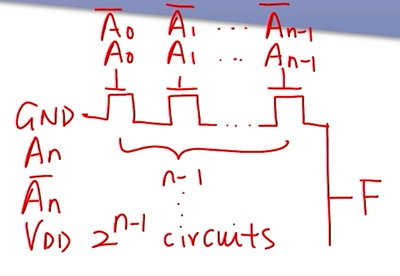 A̅0 A̅1 ... A̅n-1
A0 A1 ... An-1
GND ...
An
A̅n n-1 F
VDD 2^n-1 circuits